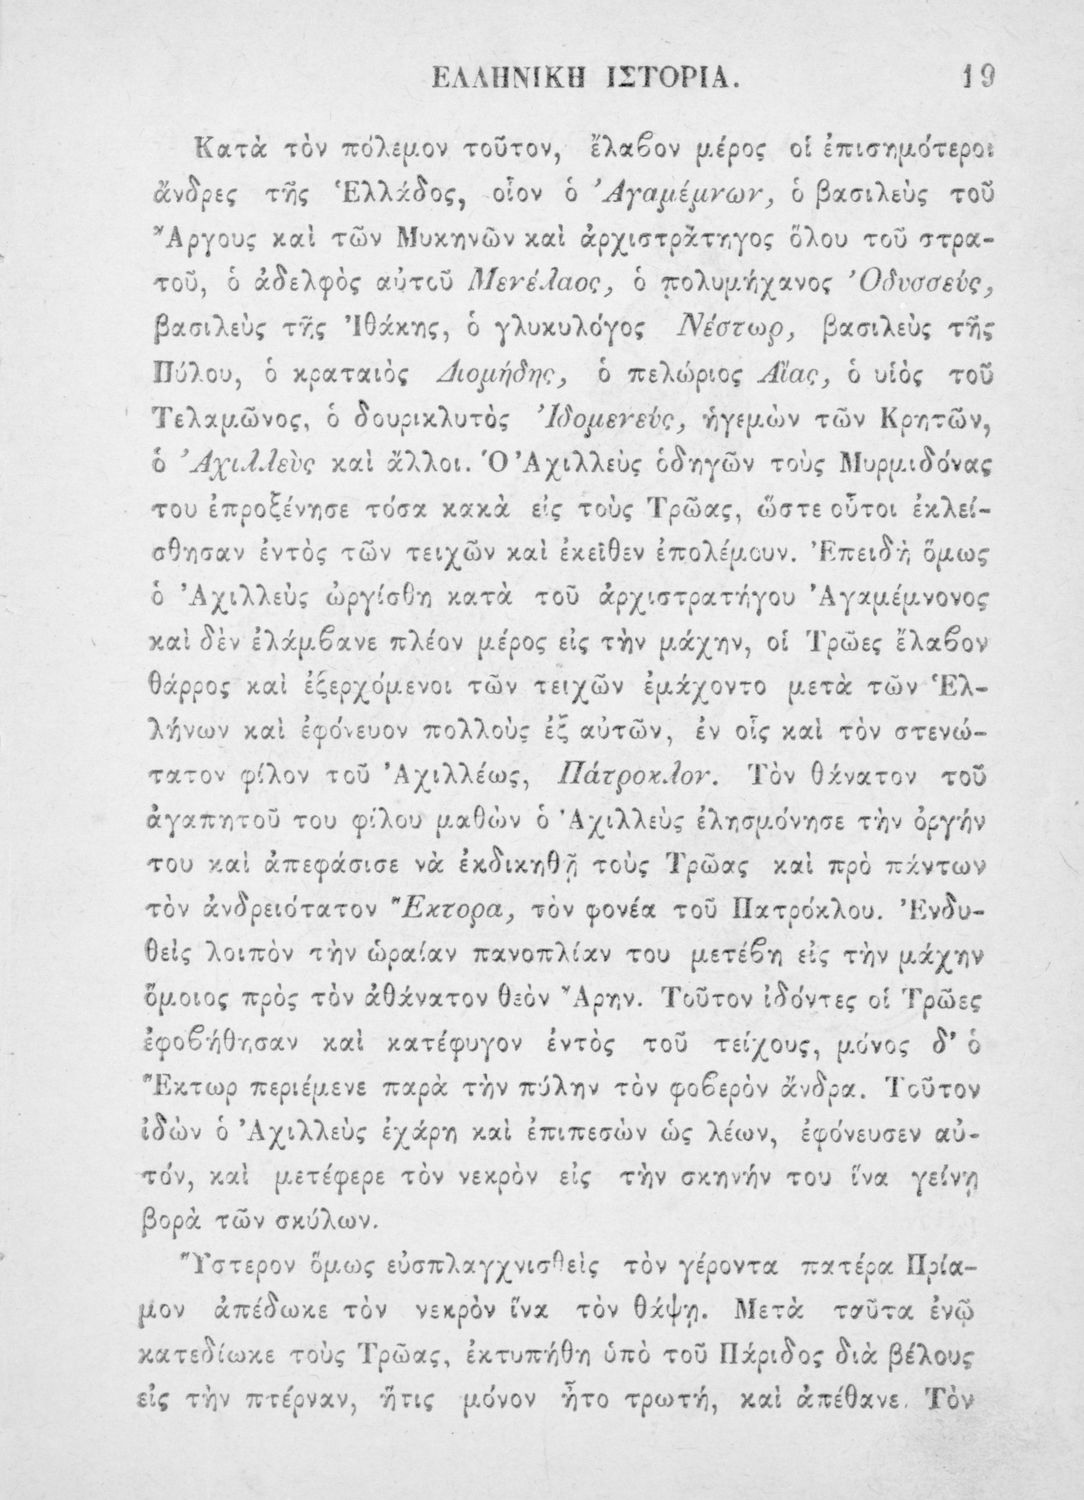 ΕΛΛΗΝΙΚΗ ΙΣΤΟΡΙΑ. 19
Κατὰ τὸν πόλεμον τοῦτον, ἔλαβον μέρος οἱ ἐπισημότεροι
ἄνδρες τῆς Ἑλλάδος, οἷον ὁ Ἀγαμέμνων, ὁ βασιλεὺς τοῦ
Ἄργους καὶ τῶν Μυκηνῶν καὶ ἀρχιστράτηγος ὅλου τοῦ στρα-
τοῦ, ὁ ἀδελφὸς αὐτοῦ Μενέλαος, ὁ πολυμήχανος Ὀδυσσεύς,
βασιλεὺς τῆς Ἰθάκης, ὁ γλυκυλόγος Νέστωρ, βασιλεὺς τῆς
Πύλου, ὁ κραταιὸς Διομήδης, ὁ πελώριος Αἴας, ὁ υἱὸς τοῦ
Τελαμῶνος, ὁ δουρικλυτὸς Ἰδομενεύς, ἡγεμὼν τῶν Κρητῶν,
ὁ Ἀχιλλεὺς καὶ ἄλλοι. Ὁ Ἀχιλλεὺς ὁδηγῶν τοὺς Μυρμιδόνας
του ἐπροξένησε τόσα κακὰ εἰς τοὺς Τρῶας, ὥστε οὗτοι ἐκλεί-
σθησαν ἐντὸς τῶν τειχῶν καὶ ἐκεῖθεν ἐπολέμουν. Ἐπειδὴ ὅμως
ὁ Ἀχιλλεὺς ὠργίσθη κατὰ τοῦ ἀρχιστρατήγου Ἀγαμέμνονος
καὶ δὲν ἐλάμβανε πλέον μέρος εἰς τὴν μάχην, οἱ Τρῶες ἔλαβον
θάρρος καὶ ἐξερχόμενοι τῶν τειχῶν ἐμάχοντο μετὰ τῶν Ἑλ-
λήνων καὶ ἐφόνευον πολλοὺς ἐξ αὐτῶν, ἐν οἷς καὶ τὸν στενώ-
τατον φίλον τοῦ Ἀχιλλέως, Πάτροκλον. Τὸν θάνατον τοῦ
ἀγαπητοῦ του φίλου μαθὼν ὁ Ἀχιλλεὺς ἐλησμόνησε τὴν ὀργήν
του καὶ ἀπεφάσισε νὰ ἐκδικηθῇ τοὺς Τρῶας καὶ πρὸ πάντων
τὸν ἀνδρειότατον Ἕκτορα, τὸν φονέα τοῦ Πατρόκλου. Ἐνδυ-
θεὶς λοιπὸν τὴν ὡραίαν πανοπλίαν του μετέβη εἰς τὴν μάχην
ὅμοιος πρὸς τὸν ἀθάνατον θεὸν Ἄρην. Τοῦτον ἰδόντες οἱ Τρῶες
ἐφοβήθησαν καὶ κατέφυγον ἐντὸς τοῦ τείχους, μόνος δ' ὁ
Ἕκτωρ περιέμενε παρὰ τὴν πύλην τὸν φοβερὸν ἄνδρα. Τοῦτον
ἰδὼν ὁ Ἀχιλλεὺς ἐχάρη καὶ ἐπιπεσὼν ὡς λέων, ἐφόνευσεν αὐ-
τόν, καὶ μετέφερε τὸν νεκρὸν εἰς τὴν σκηνήν του ἵνα γείνῃ
βορὰ τῶν σκύλων.
Ὕστερον ὅμως εὐσπλαγχνισθεὶς τὸν γέροντα πατέρα Πρία-
μον ἀπέδωκε τὸν νεκρὸν ἵνα τὸν θάψῃ. Μετὰ ταῦτα ἐνῷ
κατεδίωκε τοὺς Τρῶας, ἐκτυπήθη ὑπὸ τοῦ Πάριδος διὰ βέλους
εἰς τὴν πτέρναν, ἥτις μόνον ἦτο τρωτή, καὶ ἀπέθανε. Τὸν